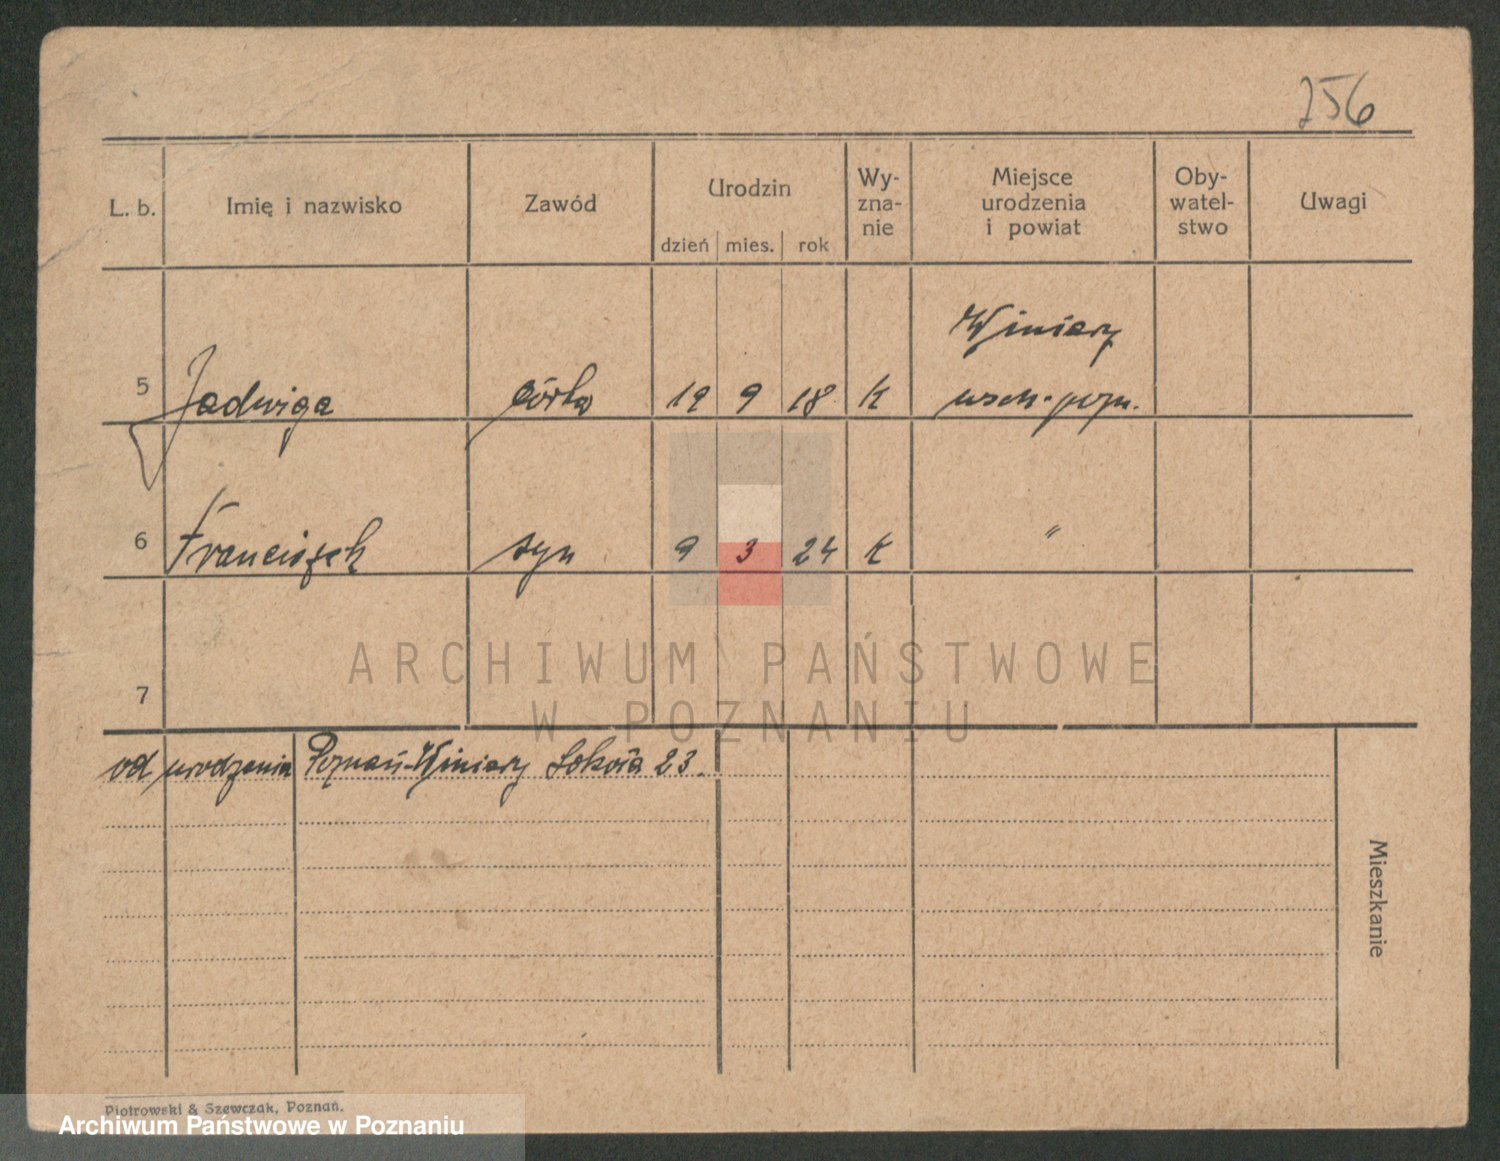 256
L. b. Imię i nazwisko Zawód Urodzin dzień mies. rok Wy-zna-nie Miejsce urodzenia i powiat Oby-watel-stwo Uwagi
Winiary
5 Jadwiga córka 12 9 18 K wsch. pozn.
6 Franciszek syn 9 3 24 K "
ARCHIWUM PAŃSTWOWE
7
W POZNANIU
od urodzenia Poznań-Winiary Sokoła 23.
Mieszkanie
Piotrowski & Szewczak, Poznań.
Archiwum Państwowe w Poznaniu